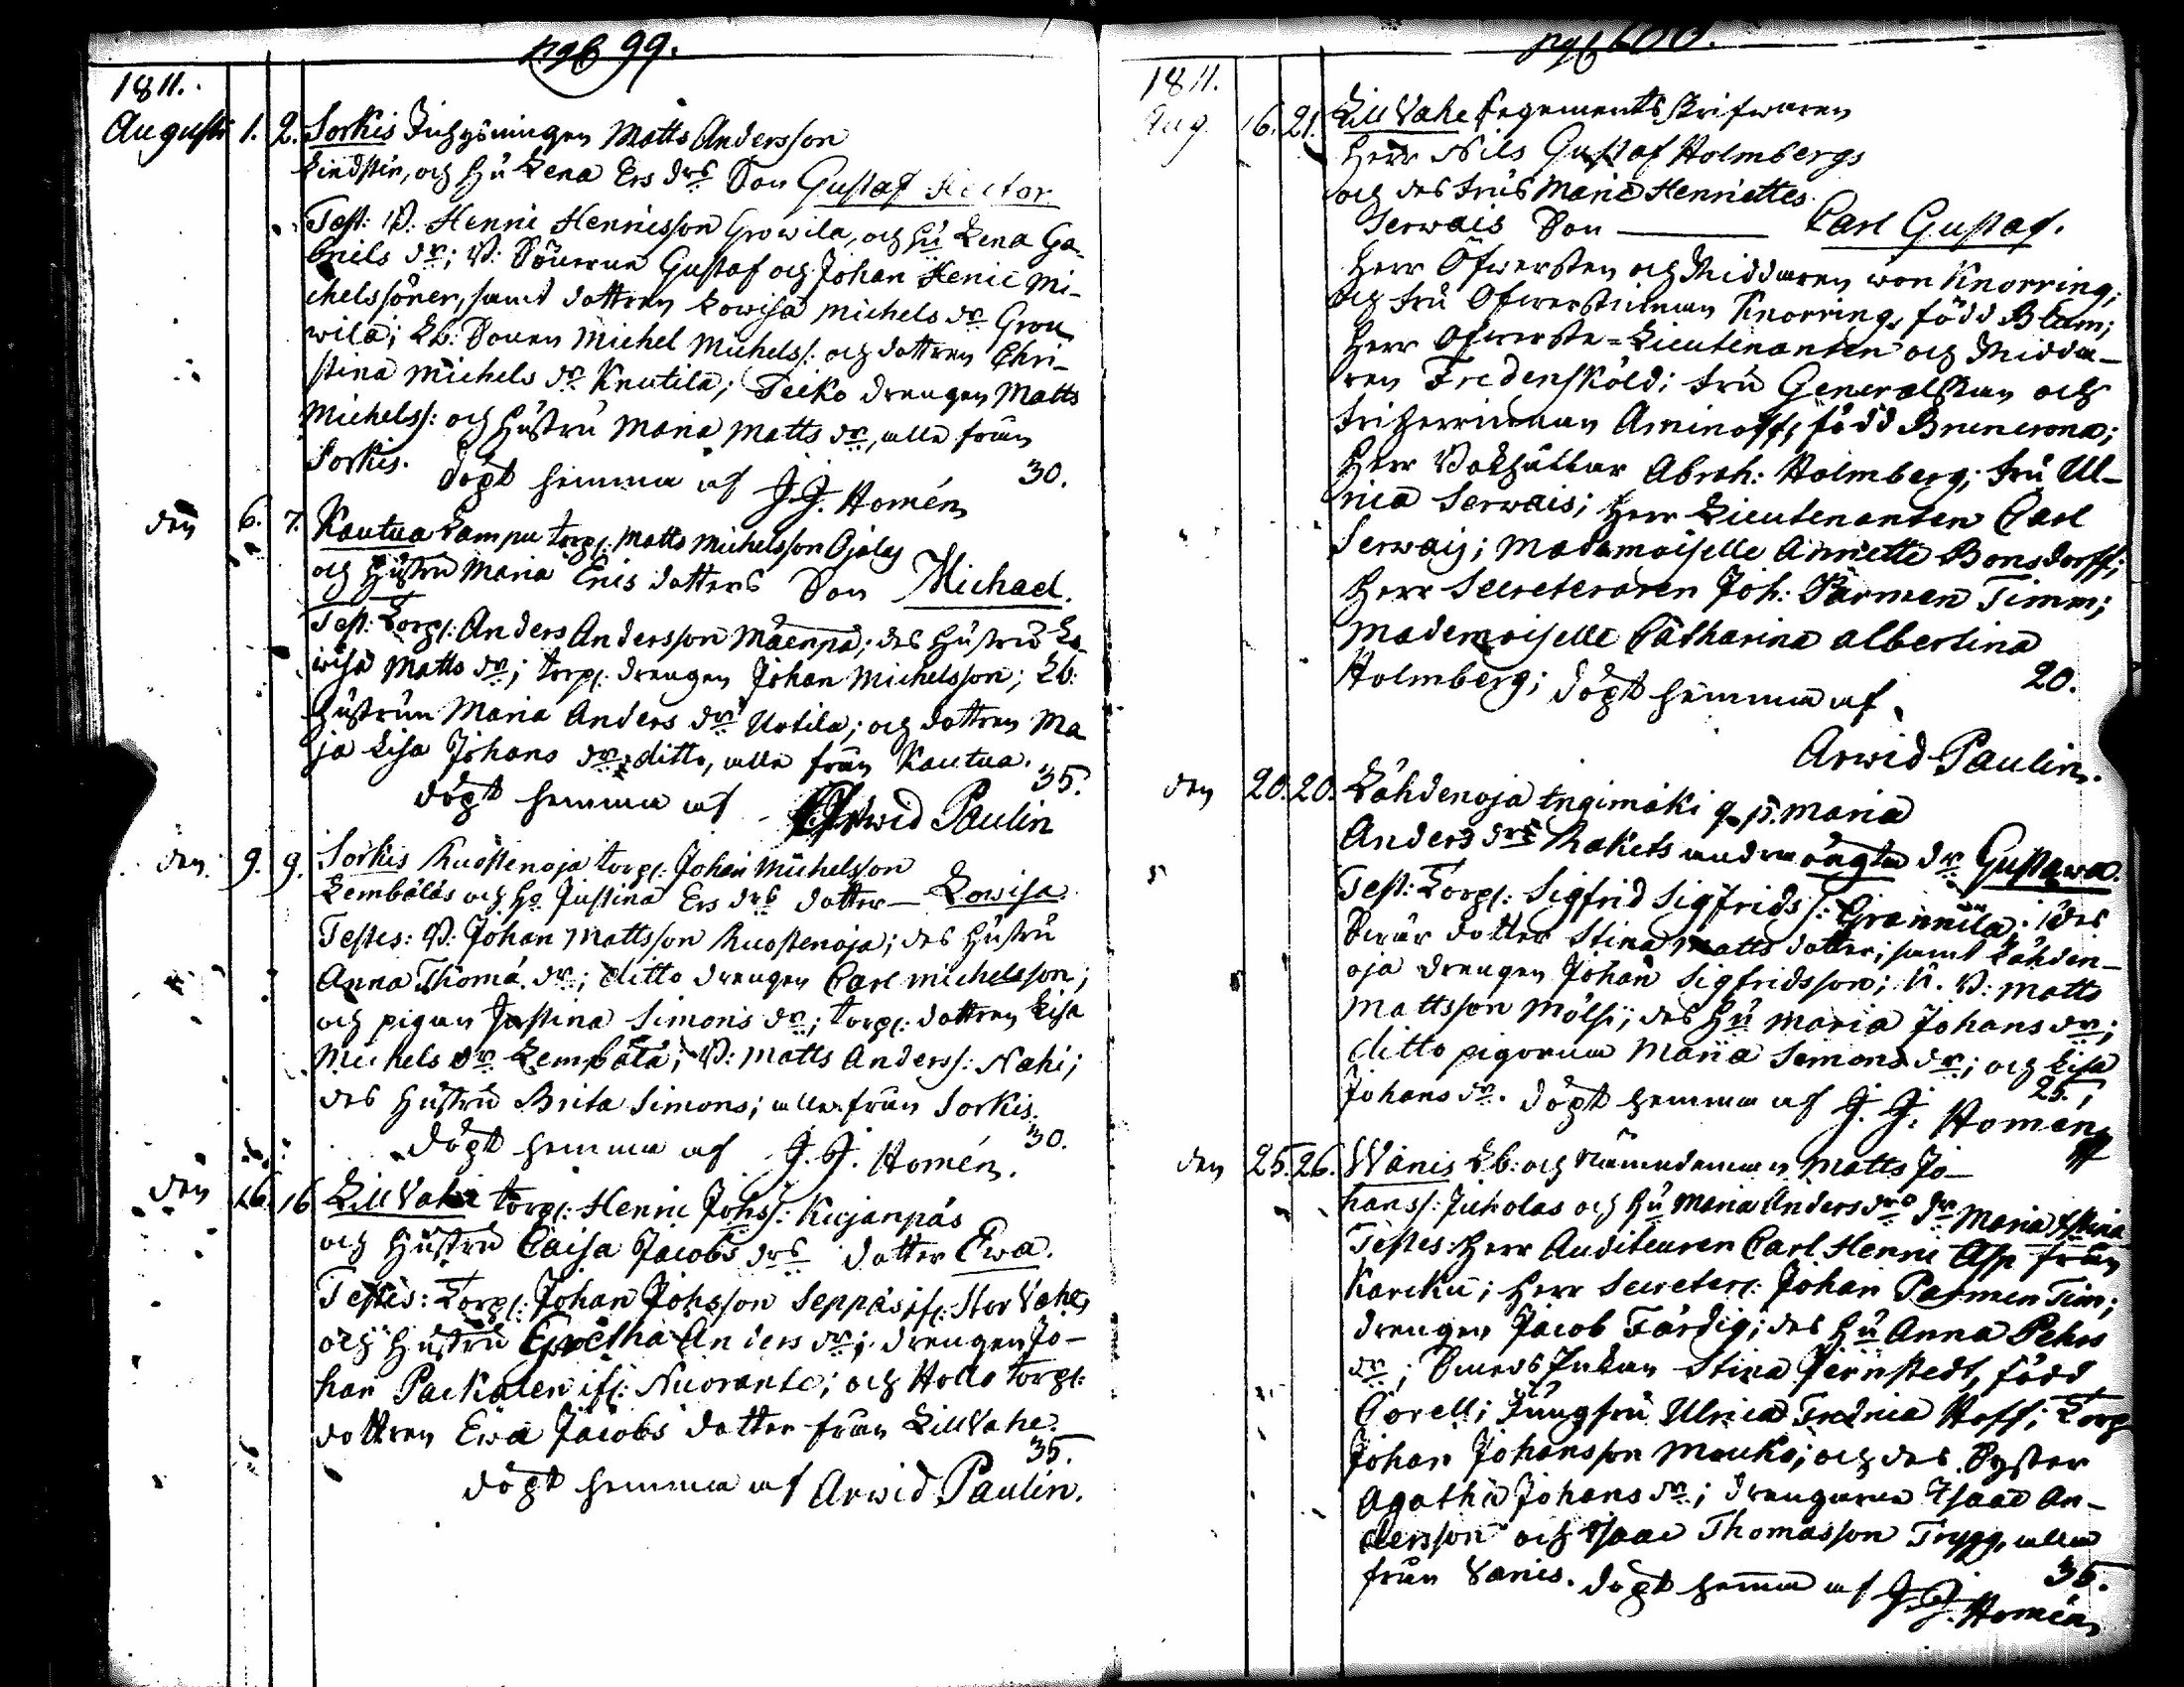 pag 99.
1811.
Augusti 1. 2. Sorkis Inhysningen Matts Andersson
Lindstén, och Hu Lena Ers drs Son Gustaf Hector
Test: B: Henric Henricsson Growila, och Hu Lena Ga-
briels dr; B: Sönerna Gustaf och Johan Henric Mi-
chelssöner, samt dottren Lowisa Michels dr Grou
wila; Lb: Sonen Michel Michels/: och dottren Chri-
stina Michels dr Knutila; Teiko drengen Matts
Michels/: och Hustru Maria Matts dr, alla från
Sorkis. 30.
döpt hemma af J. J. Homén
den 6. 7. Kautua Lampu torp/: Matts Michelsson Ojalas
och Hustru Maria Erics dotters Son Michael.
Test: Torp/: Anders Andersson Mäenpä; des Hustru Lo-
wisa Matts dr; torp/: drengen Johan Michelsson; Lb:
Hustrun Maria Anders dr Uotila; och dottren Ma
ja Lisa Johans dr ditto, alla från Kautua.
35.
döpt hemma af Arwid Paulin
den 9. 9. Sorkis Ruostenoja torp/: Johan Michelsson
Lembäläs och Ho Justina Ers drs dotter — Lowisa.
Testes: B: Johan Mattsson Ruostenoja; des Hustru
Anna Thomæ dr; ditto drengen Carl Michelsson;
och pigan Justina Simons dr; torp/: dottren Lisa
Michels dr Lembälä; B: Matts Anders/: Nahi;
des Hustru Brita Simons; alla från Sorkis.
30.
döpt hemma af J. J. Homén.
den 16. 16 Lill Vahe torp/: Henric Johs/: Kujanpäs
och Hustru Caisa Jacobs drs dotter Ewa.
Testes: Torp/: Johan Johsson Seppäs if/: Stor Vahe,
och Hustru Gretha Anders dr; drengen Jo-
han Packalen if/: Nuorante; och Hollo torp/:
dottren Ewa Jacobs dotter från Lill Vahe.
35.
döpt hemma af Arwid Paulin.
pag 100.
1811.
Aug. 16. 21. Lill Vahe Regements Skrifwaren
Herr Nils Gustaf Holmbergs
och des Frus Marie Henriettes
Serwais Son — Carl Gustaf.
Herr Öfwersten och Riddaren von Knorring,
och Fru Öfwerstinnan Knorring, född Blum;
Herr Öfwerste-Lieutenanten och Ridda-
ren Fredensköld; Fru Generalskan och
Friherrinnan Aminoff, född Brunerona;
Herr Bokhållar Abrah: Holmberg; Fru Ul-
rica Serwais; Herr Lieutenanten Carl
Serwais; Mademoiselle Annette Bonsdorff;
Herr Secreteraren Joh: Parmen Timm;
Mademoiselle Catharina Albertina
20.
Holmberg; döpt hemma af
Arwid Paulin.
den 20. 20. Lähdenoja q. p. Maria
Anders drs Rakets andra oägta dr Gustawa.
Test: Torp/: Sigfrid Sigfrids/: Grannila; des
Swär dotter Stina Matts dotter; samt Lähden-
oja drengen Johan Sigfridsson; N. B: Matts
Mattsson Mölsi; des Hu Maria Johans dr;
ditto pigorna Maria Semons dr; och Lisa
25.
Johans dr. döpt hemma af J. J. Homén
den 25. 26. Wänis Lb: och Nämndeman Matts Jo-
hans/: Juckolas och Hu Maria Anders drs dr Maria Stina
Testes: Herr Auditeuren Carl Henric Asp från
Karcku; Herr Secreter/: Johan Parmen Tim;
drengen Jacob Färdig; des Hu Anna Pehrs
dr; Stina Jernstedt, född
Corell; Jungfru Ulrica Fredrica Hoff; Torp
Johan Johansson Mauko; och des Syster
Agatha Johans dr; drengarna Isaac An-
dersson och Isaac Thomasson Trygg, alla
från Vänis. 35.
döpt hemma af J. J. Homén